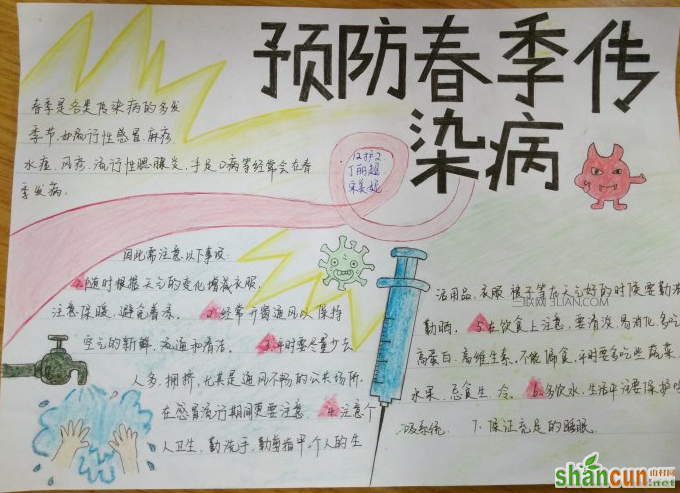 预防春季传
染病
12护2
丁丽超
春季是各类传染病的多发
季节,如流行性感冒、麻疹、
水痘、风疹、流行性腮腺炎、手足口病等经常会在春
季发病。
因此需注意以下事项:
1.随时根据天气的变化增减衣服,
注意保暖,避免着凉。 2.经常开窗通风以保持
空气的新鲜,流通和清洁。 3.平时要尽量少去
人多、拥挤,尤其是通风不畅的公共场所.
在感冒流行期间更要注意 4.注意个
人卫生,勤洗手,勤剪指甲,个人的生
活用品,衣服 被子等在天气好的时候要勤洗
勤晒。 5.在饮食上注意,要清淡,易消化,多吃
高蛋白,高维生素,不能偏食,平时要多吃些蔬菜
水果,忌食生、冷。 6.多饮水,生活中注意保护呼
吸系统. 7.保证充足的睡眠.
三联网 3LIAN.COM
shancun
山村网
.net